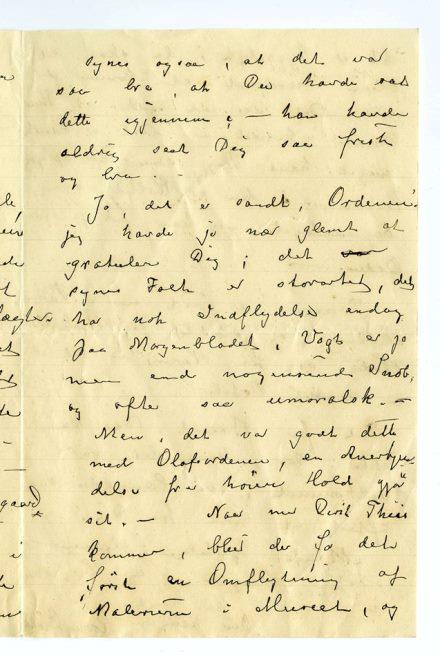 synes ogsaa, at det var
saa bra, at Du havde sat
dette igjennem; – han havde
aldrig seet Dig saa frisk
og bra. –
Jo, det er sandt, Ordenen!
jeg havde jo nær glemt at
gratulere Dig; det
synes Folk er storartet, det
har nok Indflydelse endog
paa Morgenbladet, Vogt er jo
men end nogensinde Snob,
og ofte saa umoralsk. –
Men, det var godt dette
med Olafsordenen, en Anerkjen-
delse fra høiere Hold gjør
sit. – Naar nu Dirit Thiis
kommer, blir der jo det
først en Omflytning af
Malerierne i Museet, og